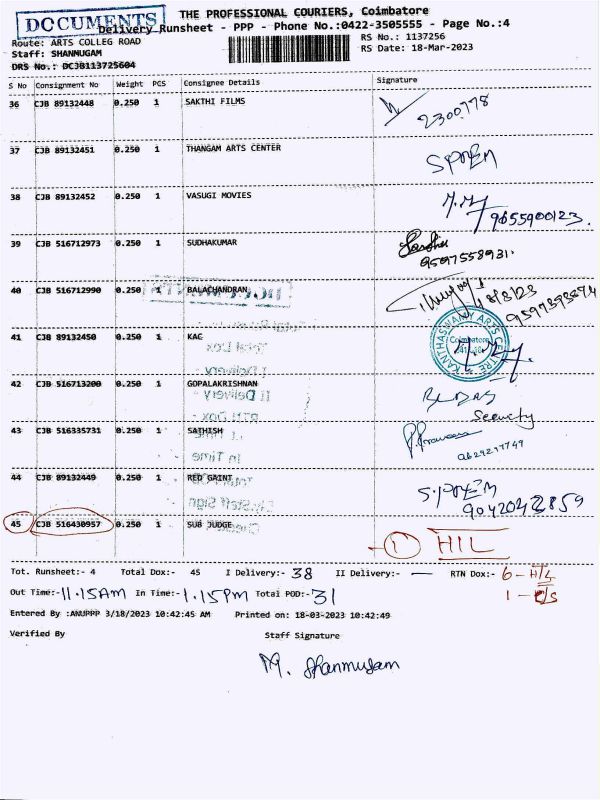 DOCUMENTS
THE PROFESSIONAL COURIERS, Coimbatore
Delivery Runsheet - PPP - Phone No.:0422-3505555 - Page No.:4
Route: ARTS COLLEG ROAD
RS No.: 1137256
Staff: SHANMUGAM
RS Date: 18-Mar-2023
DRS No.: DCJB113725604
S No Consignment No Weight PCS Consignee Details Signature
36 CJB 89132448 0.250 1 SAKTHI FILMS
2300778
37 CJB 89132451 0.250 1 THANGAM ARTS CENTER
38 CJB 89132452 0.250 1 VASUGI MOVIES
9655900123.
39 CJB 516712973 0.250 1 SUDHAKUMAR
9597558931.
40 CJB 516712990 0.250 1 BALACHANDRAN
KANTHASWAMY ARTS CENTRE
Coimbatore
41 CJB 89132450 0.250 1 KAC
42 CJB 516713200 0.250 1 GOPALAKRISHNAN
Security
43 CJB 516335731 0.250 1 SATHISH
44 CJB 89132449 0.250 1 RED SAINT
45 CJB 516430957 0.250 1 SUB JUDGE
1 H/L
Tot. Runsheet:- 4 Total Dox:- 45 I Delivery:- 38 II Delivery:- — RTN Dox:- 6 - H/L
Out Time:- 11.15AM In Time:- 1.15PM Total POD:- 31
Entered By :ANUPPP 3/18/2023 10:42:45 AM Printed on: 18-03-2023 10:42:49
Verified By Staff Signature
M. Shanmugam